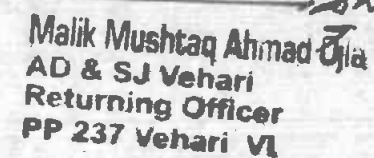 Malik Mushtaq Ahmad Ojla
AD & SJ Vehari
Returning Officer
PP 237 Vehari VI